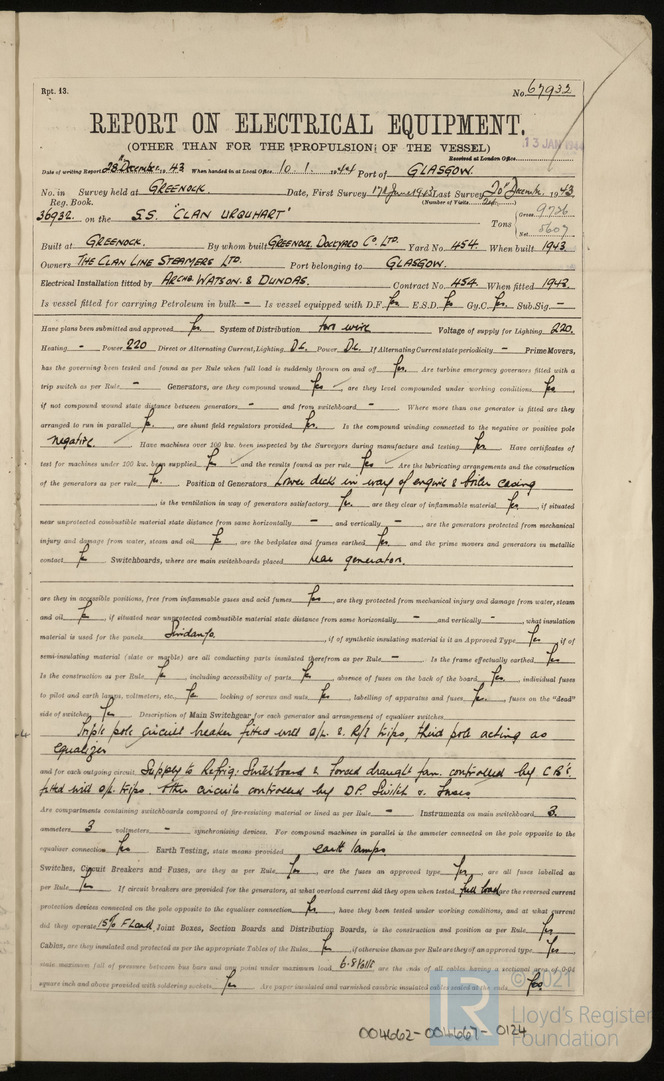 Rpt. 13.
No. 67932
REPORT ON ELECTRICAL EQUIPMENT.
(OTHER THAN FOR THE PROPULSION OF THE VESSEL)
13 JAN 1944
Received at London Office
Date of writing Report 28th December 1943 When handed in at Local Office 10. 1. 1944 Port of GLASGOW.
No. in Survey held at GREENOCK. Date, First Survey 17th June 1943 Last Survey 20th December 1943
Reg. Book. (Number of Visits 24)
36932 on the S.S. "CLAN URQUHART" Tons { Gross 9726
Net 5607
Built at GREENOCK. By whom built GREENOCK DOCKYARD CO. LTD. Yard No. 454. When built 1943.
Owners THE CLAN LINE STEAMERS LTD. Port belonging to GLASGOW.
Electrical Installation fitted by ARCHD. WATSON & DUNDAS. Contract No. 454. When fitted 1943.
Is vessel fitted for carrying Petroleum in bulk - Is vessel equipped with D.F. Yes E.S.D. Yes Gy.C. Yes Sub.Sig. -
Have plans been submitted and approved Yes. System of Distribution two wire Voltage of supply for Lighting 220.
Heating - Power 220 Direct or Alternating Current, Lighting D.C. Power D.C. If Alternating Current state periodicity - Prime Movers,
has the governing been tested and found as per Rule when full load is suddenly thrown on and off Yes. Are turbine emergency governors fitted with a
trip switch as per Rule - Generators, are they compound wound Yes, are they level compounded under working conditions Yes,
if not compound wound state distance between generators - and from switchboard - Where more than one generator is fitted are they
arranged to run in parallel Yes, are shunt field regulators provided Yes. Is the compound winding connected to the negative or positive pole
Negative. Have machines over 100 kw. been inspected by the Surveyors during manufacture and testing Yes. Have certificates of
test for machines under 100 kw. been supplied Yes and the results found as per rule Yes Are the lubricating arrangements and the construction
of the generators as per rule Yes. Position of Generators Lower deck in way of engine & boiler casing
, is the ventilation in way of generators satisfactory Yes. are they clear of inflammable material Yes, if situated
near unprotected combustible material state distance from same horizontally - and vertically -, are the generators protected from mechanical
injury and damage from water, steam and oil Yes, are the bedplates and frames earthed Yes and the prime movers and generators in metallic
contact Yes Switchboards, where are main switchboards placed near generators.
are they in accessible positions, free from inflammable gases and acid fumes Yes, are they protected from mechanical injury and damage from water, steam
and oil Yes, if situated near unprotected combustible material state distance from same horizontally - and vertically -, what insulation
material is used for the panels Sindanyo, if of synthetic insulating material is it an Approved Type Yes, if of
semi-insulating material (slate or marble) are all conducting parts insulated therefrom as per Rule - Is the frame effectually earthed Yes
Is the construction as per Rule Yes, including accessibility of parts Yes, absence of fuses on the back of the board Yes, individual fuses
to pilot and earth lamps, voltmeters, etc. Yes locking of screws and nuts Yes, labelling of apparatus and fuses Yes., fuses on the "dead"
side of switches Yes. Description of Main Switchgear for each generator and arrangement of equaliser switches
Triple pole circuit breaker fitted with O/L. & R/C trips, third pole acting as
equalizer
and for each outgoing circuit Supply to Refrig: Switchboard & Forced draught fan controlled by C.B's.
fitted with O/L trips. Other circuits controlled by D.P. Switch & Fuses
Are compartments containing switchboards composed of fire-resisting material or lined as per Rule - Instruments on main switchboard 3.
ammeters 3 voltmeters - synchronising devices. For compound machines in parallel is the ammeter connected on the pole opposite to the
equaliser connection Yes. Earth Testing, state means provided earth lamps
Switches, Circuit Breakers and Fuses, are they as per Rule Yes, are the fuses an approved type Yes, are all fuses labelled as
per Rule Yes If circuit breakers are provided for the generators, at what overload current did they open when tested full load are the reversed current
protection devices connected on the pole opposite to the equaliser connection Yes, have they been tested under working conditions, and at what current
did they operate 15% F Load. Joint Boxes, Section Boards and Distribution Boards, is the construction and position as per Rule Yes
Cables, are they insulated and protected as per the appropriate Tables of the Rules Yes, if otherwise than as per Rule are they of an approved type Yes
state maximum fall of pressure between bus bars and any point under maximum load 6.8 Volts are the ends of all cables having a sectional area of 0.04
square inch and above provided with soldering sockets Yes Are paper insulated and varnished cambric insulated cables sealed at the ends Yes.
004662-004667-0124
© 2021
LR
Lloyd's Register
Foundation